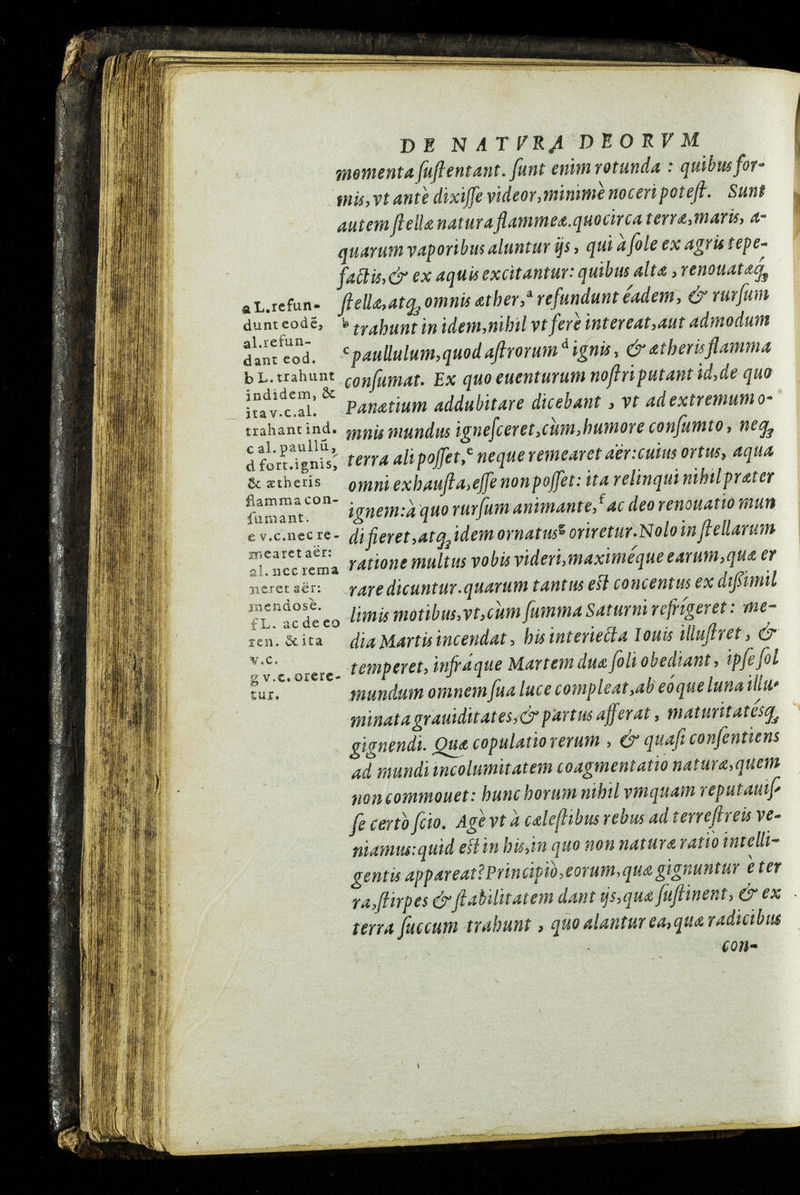 DE NATVRA DEORVM
momenta sustentant. sunt enim rotunda : quibus for-
mis, vt ante dixisse videor, minime noceri potest. Sunt
autem stellæ natura flammeæ. quocirca terræ, maris, a-
quarum vaporibus aluntur ijs, qui à sole ex agris tepe-
factis, & ex aquis excitantur: quibus altæ, renouatæq;
stellæ, atq; omnis æther,ª refundunt éadem, & rursum
ᵇ trahunt in idem, nihil vt fere intereat, aut admodum
ᶜ paullulum, quod astrorum ᵈ ignis, & ætheris flamma
consumat. Ex quo euenturum nostri putant id, de quo
Panætium addubitare dicebant, vt ad extremum o-
mnis mundus ignesceret, cùm, humore consumto, neq;
terra ali posset,ᵉ neque remearet aër: cuius ortus, aqua
omni exhausta, esse non posset: ita relinqui nihil præter
ignem: à quo rursum animante,ᶠ ac deo renouatio mun
di fieret, atq; idem ornatusᵍ oriretur. Nolo in stellarum
ratione multus vobis videri, maximéque earum, quæ er
rare dicuntur. quarum tantus est concentus ex dissimil
limis motibus, vt, cùm summa Saturni refrigeret : me-
dia Martis incendat, his interiecta Iouis illustret, &
temperet, infráque Martem duæ soli obediant, ipse sol
mundum omnem sua luce compleat, ab eóque luna illu-
minata grauiditates, & partus afferat, maturitatésq;
gignendi. Quæ copulatio rerum, & quasi consentiens
ad mundi incolumitatem coagmentatio naturæ, quem
non commouet: hunc horum nihil vmquam reputauis-
se certò scio. Age vt à cælestibus rebus ad terrestreis ve-
niamus: quid est in his, in quo non naturæ ratio intelli-
gentis appareat? Principiò, eorum, quæ gignuntur è ter
ra, stirpes & stabilitatem dant ijs, quæ sustinent, & ex
terra succum trahunt, quo alantur ea, quæ radicibus
con-
a L. refun-
dunt eodē,
al. refun-
dant eod.
b L. trahunt
indidem, &
ita v.c. al.
trahant ind.
c al. paullū,
d fort. ignis,
& ætheris
flamma con-
sumant.
e v.c. nec re-
mearet aër:
al. nec rema
neret aër:
mendosè.
f L. ac de eo
ren. & ita
v.c.
g v.c. orere-
tur.